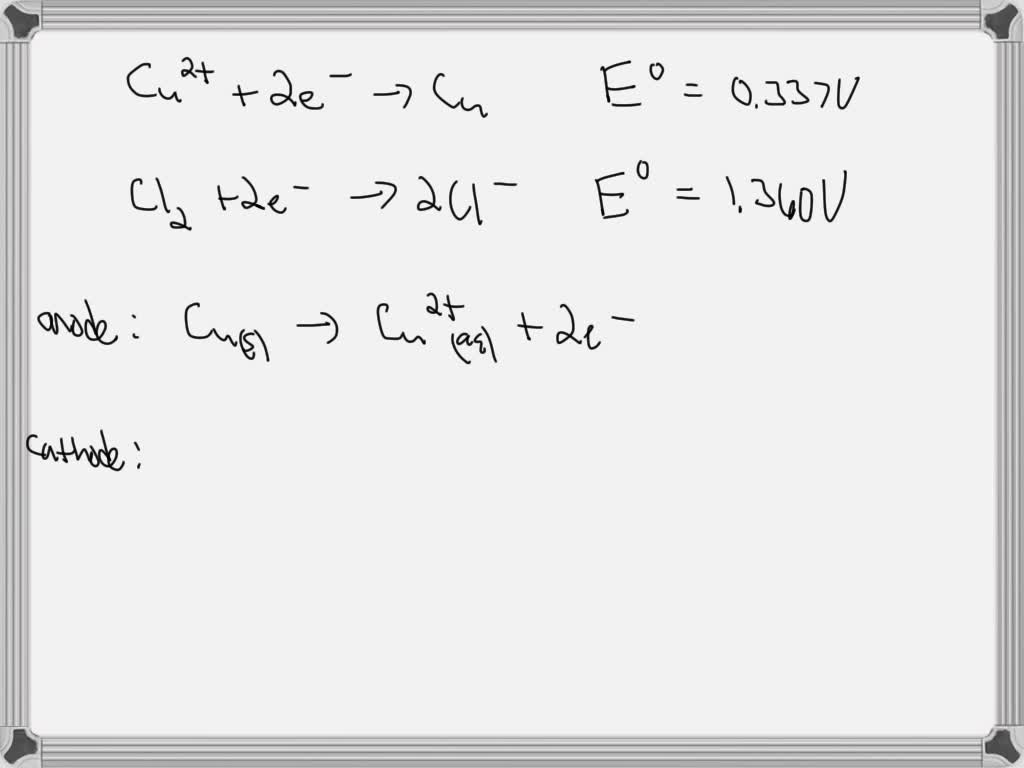 Cu²⁺ + 2e⁻ → Cu E⁰ = 0.337V
Cl₂ + 2e⁻ → 2Cl⁻ E⁰ = 1.360V
anode: Cu(s) → Cu²⁺(aq) + 2e⁻
cathode: